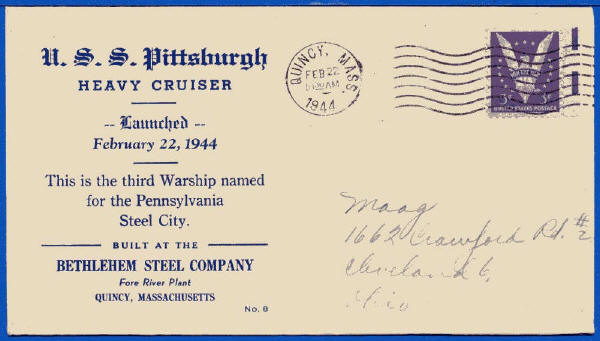 U. S. S. Pittsburgh
HEAVY CRUISER
-- Launched --
February 22, 1944
This is the third Warship named
for the Pennsylvania
Steel City.
BUILT AT THE
BETHLEHEM STEEL COMPANY
Fore River Plant
QUINCY, MASSACHUSETTS
No. 8
QUINCY, MASS.
FEB 22
AM
1944
3¢ 3¢
UNITED STATES POSTAGE
Maag
1662 Crawford Rd. #2
Cleveland 6,
Ohio